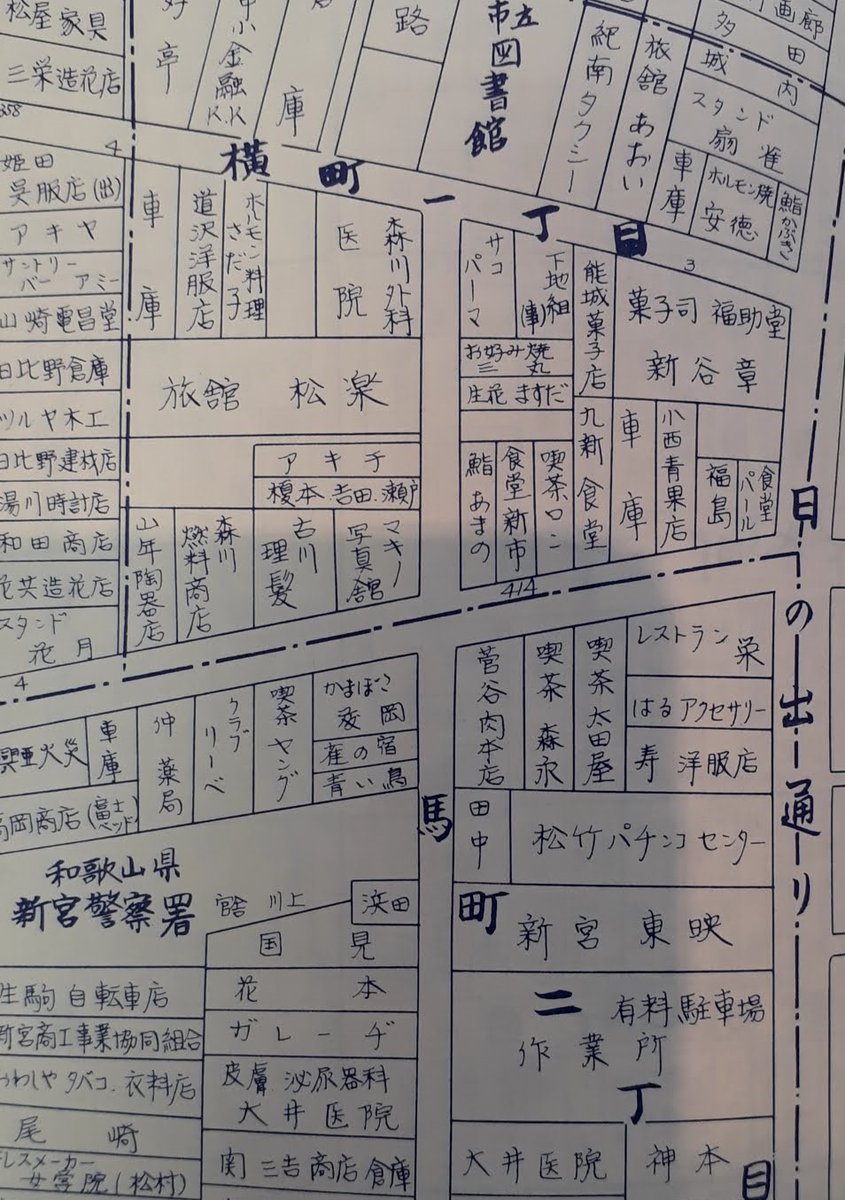 松屋家具
三栄造花店
好亭
中小金融K.K
庫
路
市立図書館
紀南タクシー
旅館 あおい
画廊
多田
城内
スタンド
扇雀
車庫
ホルモン焼
安徳
鮨かぶき
358
4
横町一丁目
3
姫田
呉服店(出)
アキヤ
サントリー
バー アミー
山崎電昌堂
日比野倉庫
ツルヤ木工
日比野建材店
湯川時計店
和田商店
花共造花店
スタンド
花月
車庫
道沢洋服店
ホルモン料理
さだ子
医院
森川外科
旅舘 松楽
アキチ
榎本.吉田.瀬戸
山年陶器店
森川
燃料商店
古川
理髪
マキノ
写真舘
サコ
パーマ
下地組
(事)
お好み焼
三丸
生花 ますだ
能城菓子店
菓子司 福助堂
新谷章
鮨 あまの
食堂新市
喫茶ロン
九新食堂
車庫
小西青果店
福島
食堂
パール
414
日の出通り
4
興亜火災
車庫
仲薬局
クラブ
リーベ
喫茶ヤング
かまぼこ
雀の宿
青い鳥
高岡商店(富士ベッド)
菅谷肉本店
喫茶 森永
喫茶 太田屋
レストラン 栄
はる アクセサリー
寿 洋服店
田中
松竹パチンコセンター
馬町二丁目
和歌山県
新宮警察署
官舎 川上
浜田
国見
新宮東映
生駒自転車店
花本
新宮商工事業協同組合
ガレーヂ
有料駐車場
作業所
かわしや タバコ.衣料店
皮膚.泌尿器科
大井医院
尾崎
ドレスメーカー
女学院(松村)
関三吉商店倉庫
大井医院
神本